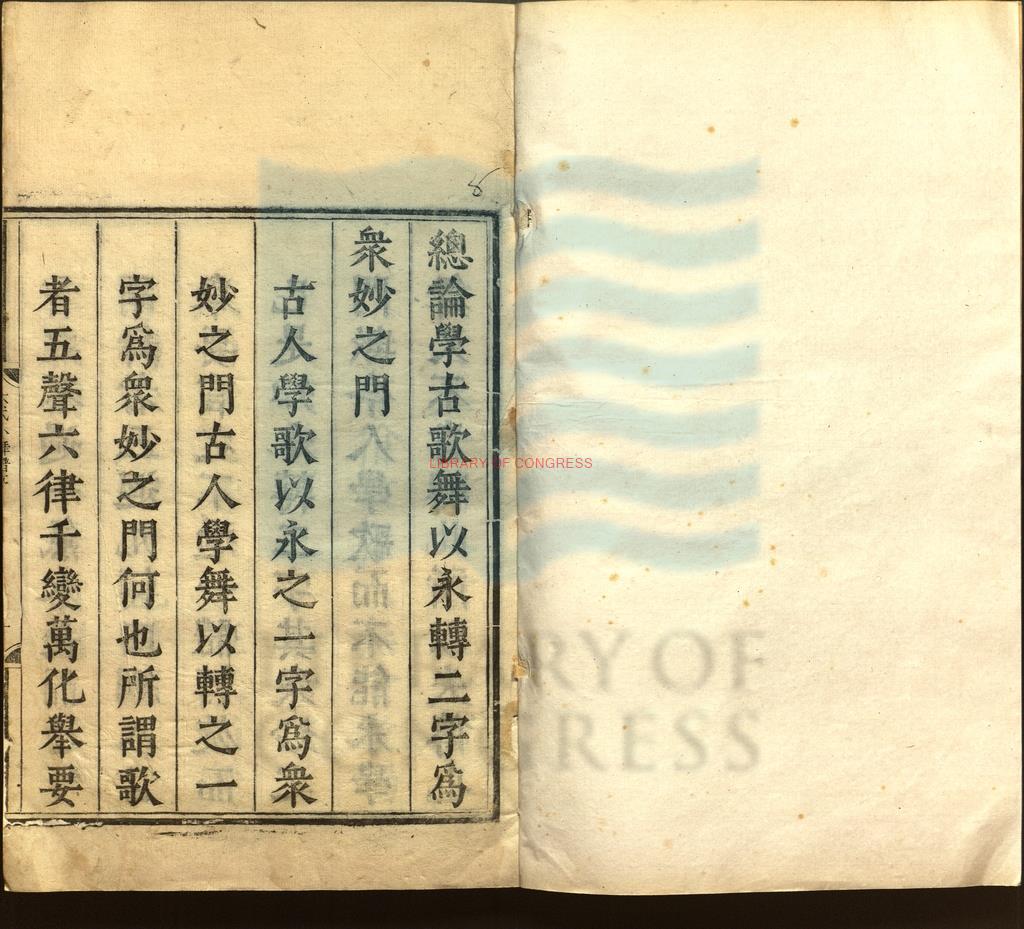 總論學古歌舞以永轉二字爲
衆妙之門
古人學歌以永之一字爲衆
妙之門古人學舞以轉之一
字爲衆妙之門何也所謂歌
者五聲六律千變萬化舉要
8
LIBRARY OF CONGRESS
RY OF
RESS